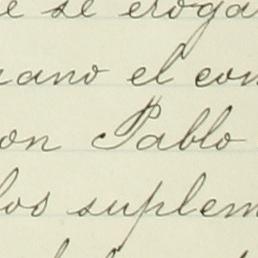 e se eroga
mano el con
on Pablo
los suplem